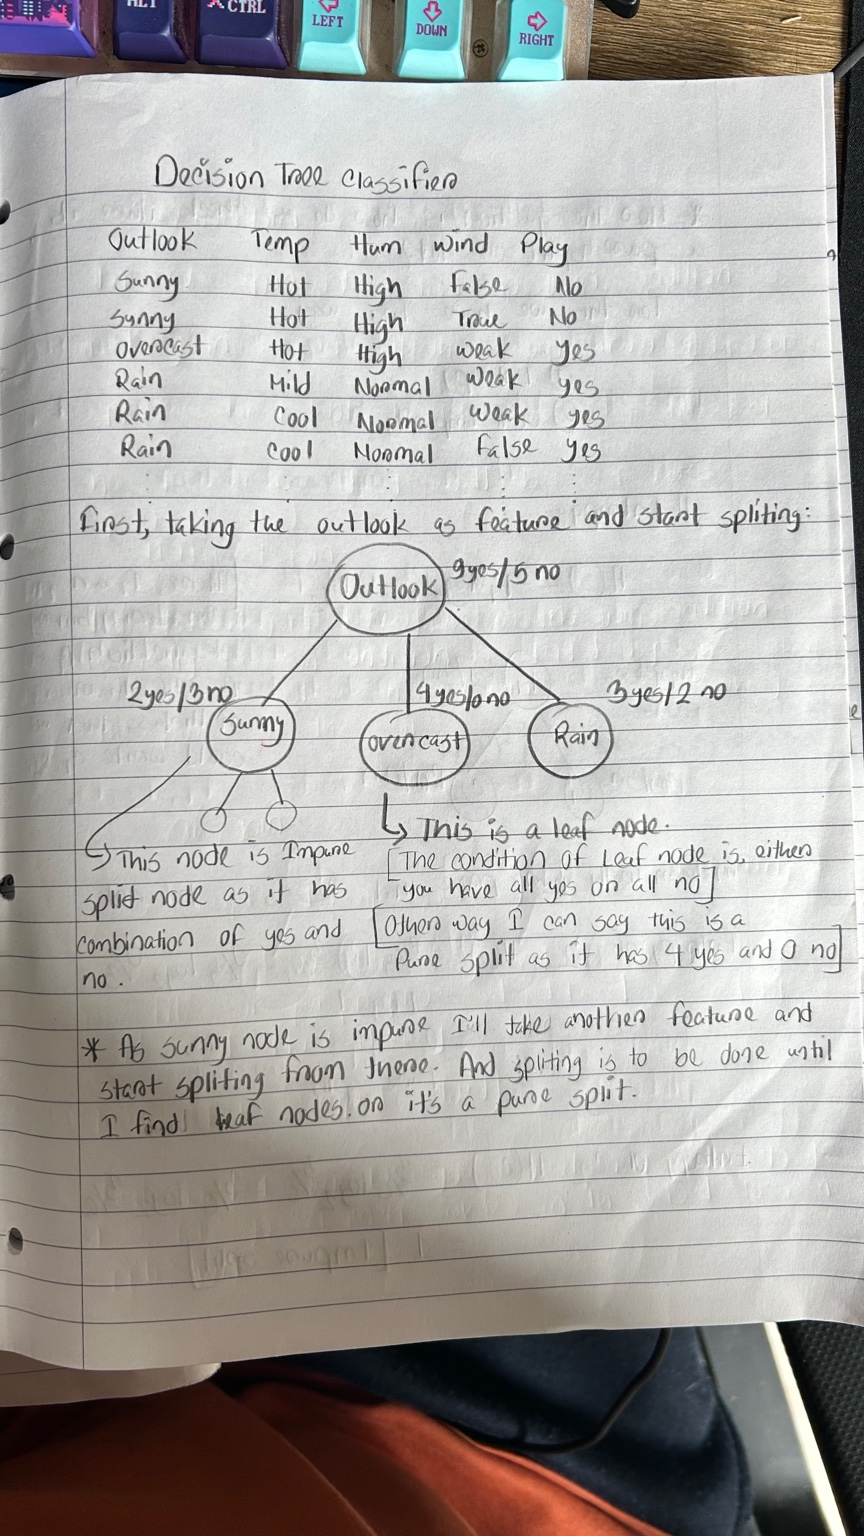 ALT
CTRL
LEFT
DOWN
RIGHT
Decision Tree Classifier
Outlook Temp Hum Wind Play
Sunny Hot High False No
Sunny Hot High True No
Overcast Hot High Weak Yes
Rain Mild Normal Weak yes
Rain Cool Normal Weak yes
Rain Cool Normal False yes
First, taking the outlook as feature and start spliting:
Outlook 9yes/5 no
2yes/3no 4yes/0no 3yes/2 no
Sunny overcast Rain
This is a leaf node.
This node is Impure
split node as it has
combination of yes and
no.
[The condition of Leaf node is, either
you have all yes or all no]
[Other way I can say this is a
Pure split as it has 4 yes and 0 no]
* As sunny node is impure I'll take another feature and
start spliting from there. And spliting is to be done until
I find leaf nodes. or it's a pure split.